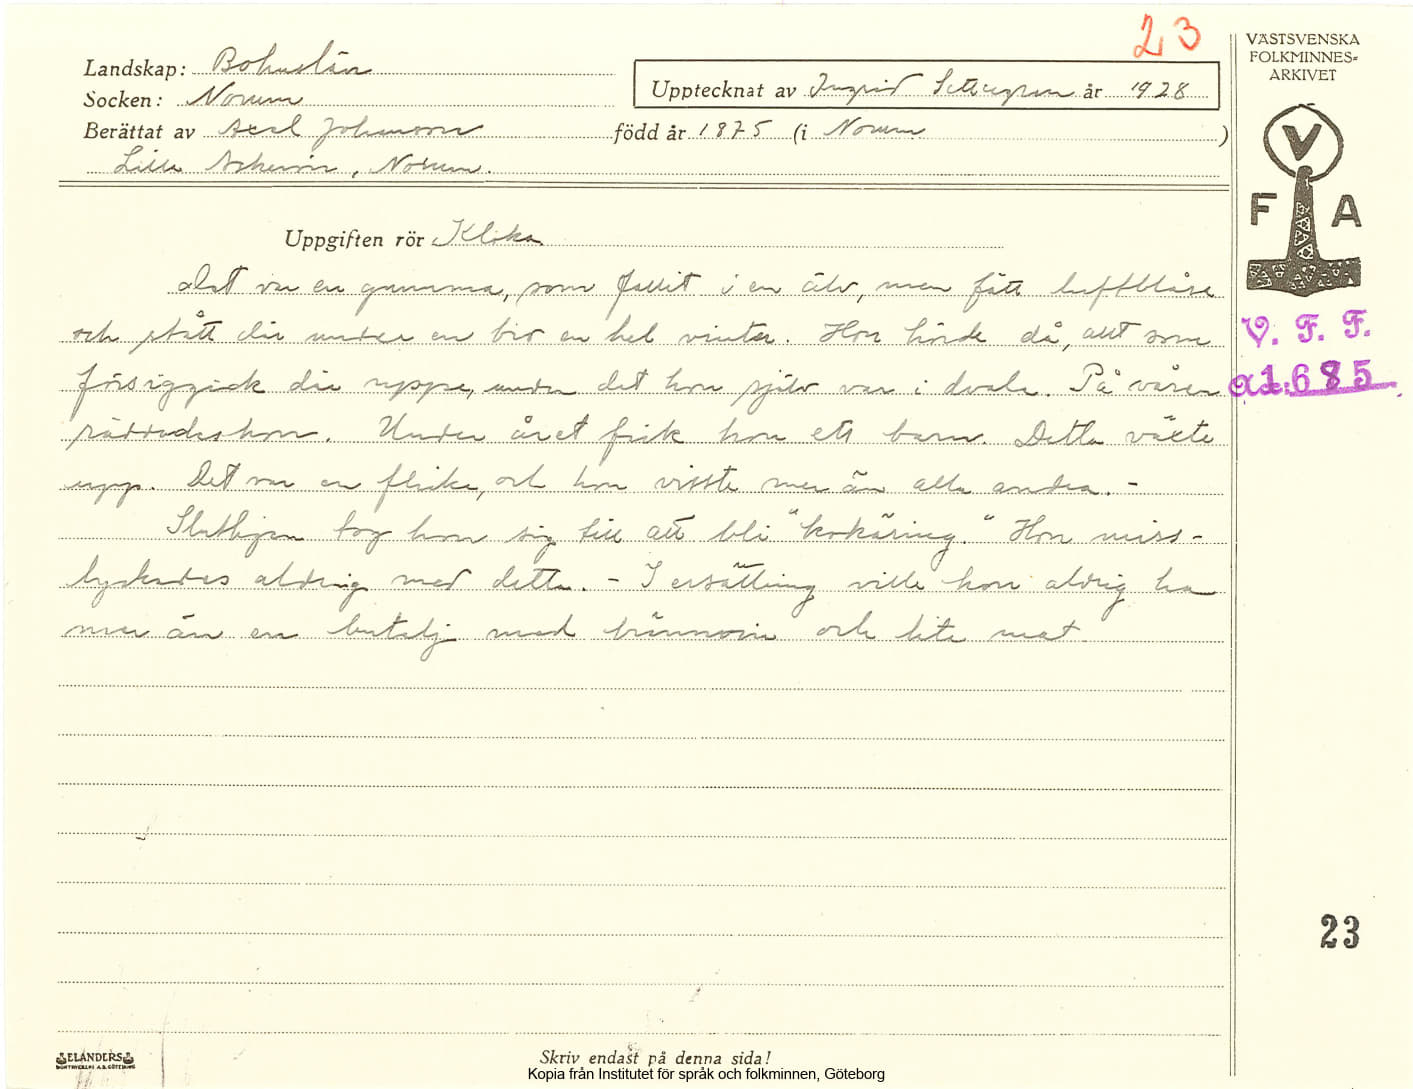 23
VÄSTSVENSKA
FOLKMINNES=
ARKIVET
Landskap: Bohuslän
Socken: Norum
Upptecknat av Ingrid år 1928
Berättat av Axel Johansson född år 1875 (i Norum)
Lilla Askerön, Norum.
V
F A
Uppgiften rör Kloka
Det var en gumma, som fallit i en älv, men fått luftblåsa
och stått där under en bro en hel vinter. Hon hörde då, allt som
försiggick där uppe, under det hon själv var i dvala. På våren
räddades hon. Under året fick hon ett barn. Detta växte
upp. Det var en flicka, och hon visste mer än alla andra. -
Slutligen tog hon sig till att bli "kokäring." Hon miss-
lyckades aldrig med detta. - I ersättning ville hon aldrig ha
mer än en butelj med brännvin och lite mat.
V. F. F.
1685
23
ELANDERS
Skriv endast på denna sida!
Kopia från Institutet för språk och folkminnen, Göteborg